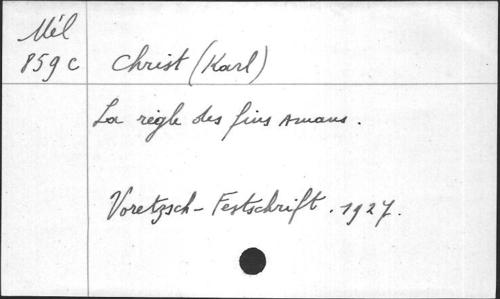 Mél
859 c
Christ (Karl)
La règle des fins amans.
Voretzsch - Festschrift. 1927.